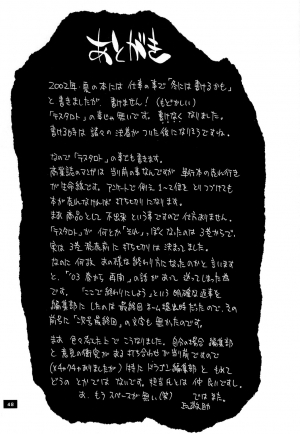 あとがき
2002年 夏の本には 仕事の事で「冬には書けるかも」
と書きましたが、書けません！（もどかしい）
「テスタロト」の事せの無いです。書けなくなりました。
書ける時は 諸々の決着がついた後になりそうですね。
なので「テスタロト」の事も書きます。
商業誌のマンガは 当り前の事なんですが 単行本の売れ行き
が生命線です。アンケートで例え 1〜2位を とりつづけても
本が売れなければ 打ち切りになります。
まあ商品として 不出来 という事ですので 仕方ありません。
「テスタロト」が 何とか「それ」っぽくなったのは 3巻からで、
実は 3巻 発表前に 打ち切りは 決まってました。
なのに何故 あの様な終わり方になったのかと言いますと
「'03 春から 再開」の話が あって 迷ってした為
です。「ここで終わりにしよう」という 明確な返事を
編集部に したのは 最終回ネーム提出時だったので、その
前号に「次号最終回」の文字も 無かったのです。
まあ 色々あった上で こうなりました。自分の場合 編集部
と 意見の衝突がある 打ち合わせが 当り前ですので
特に ドラゴン編集部と もめて
どうの とかでは ないです。担当氏とは 仲良いですし。
お、もう スペースが無い（笑） ではまた。
48